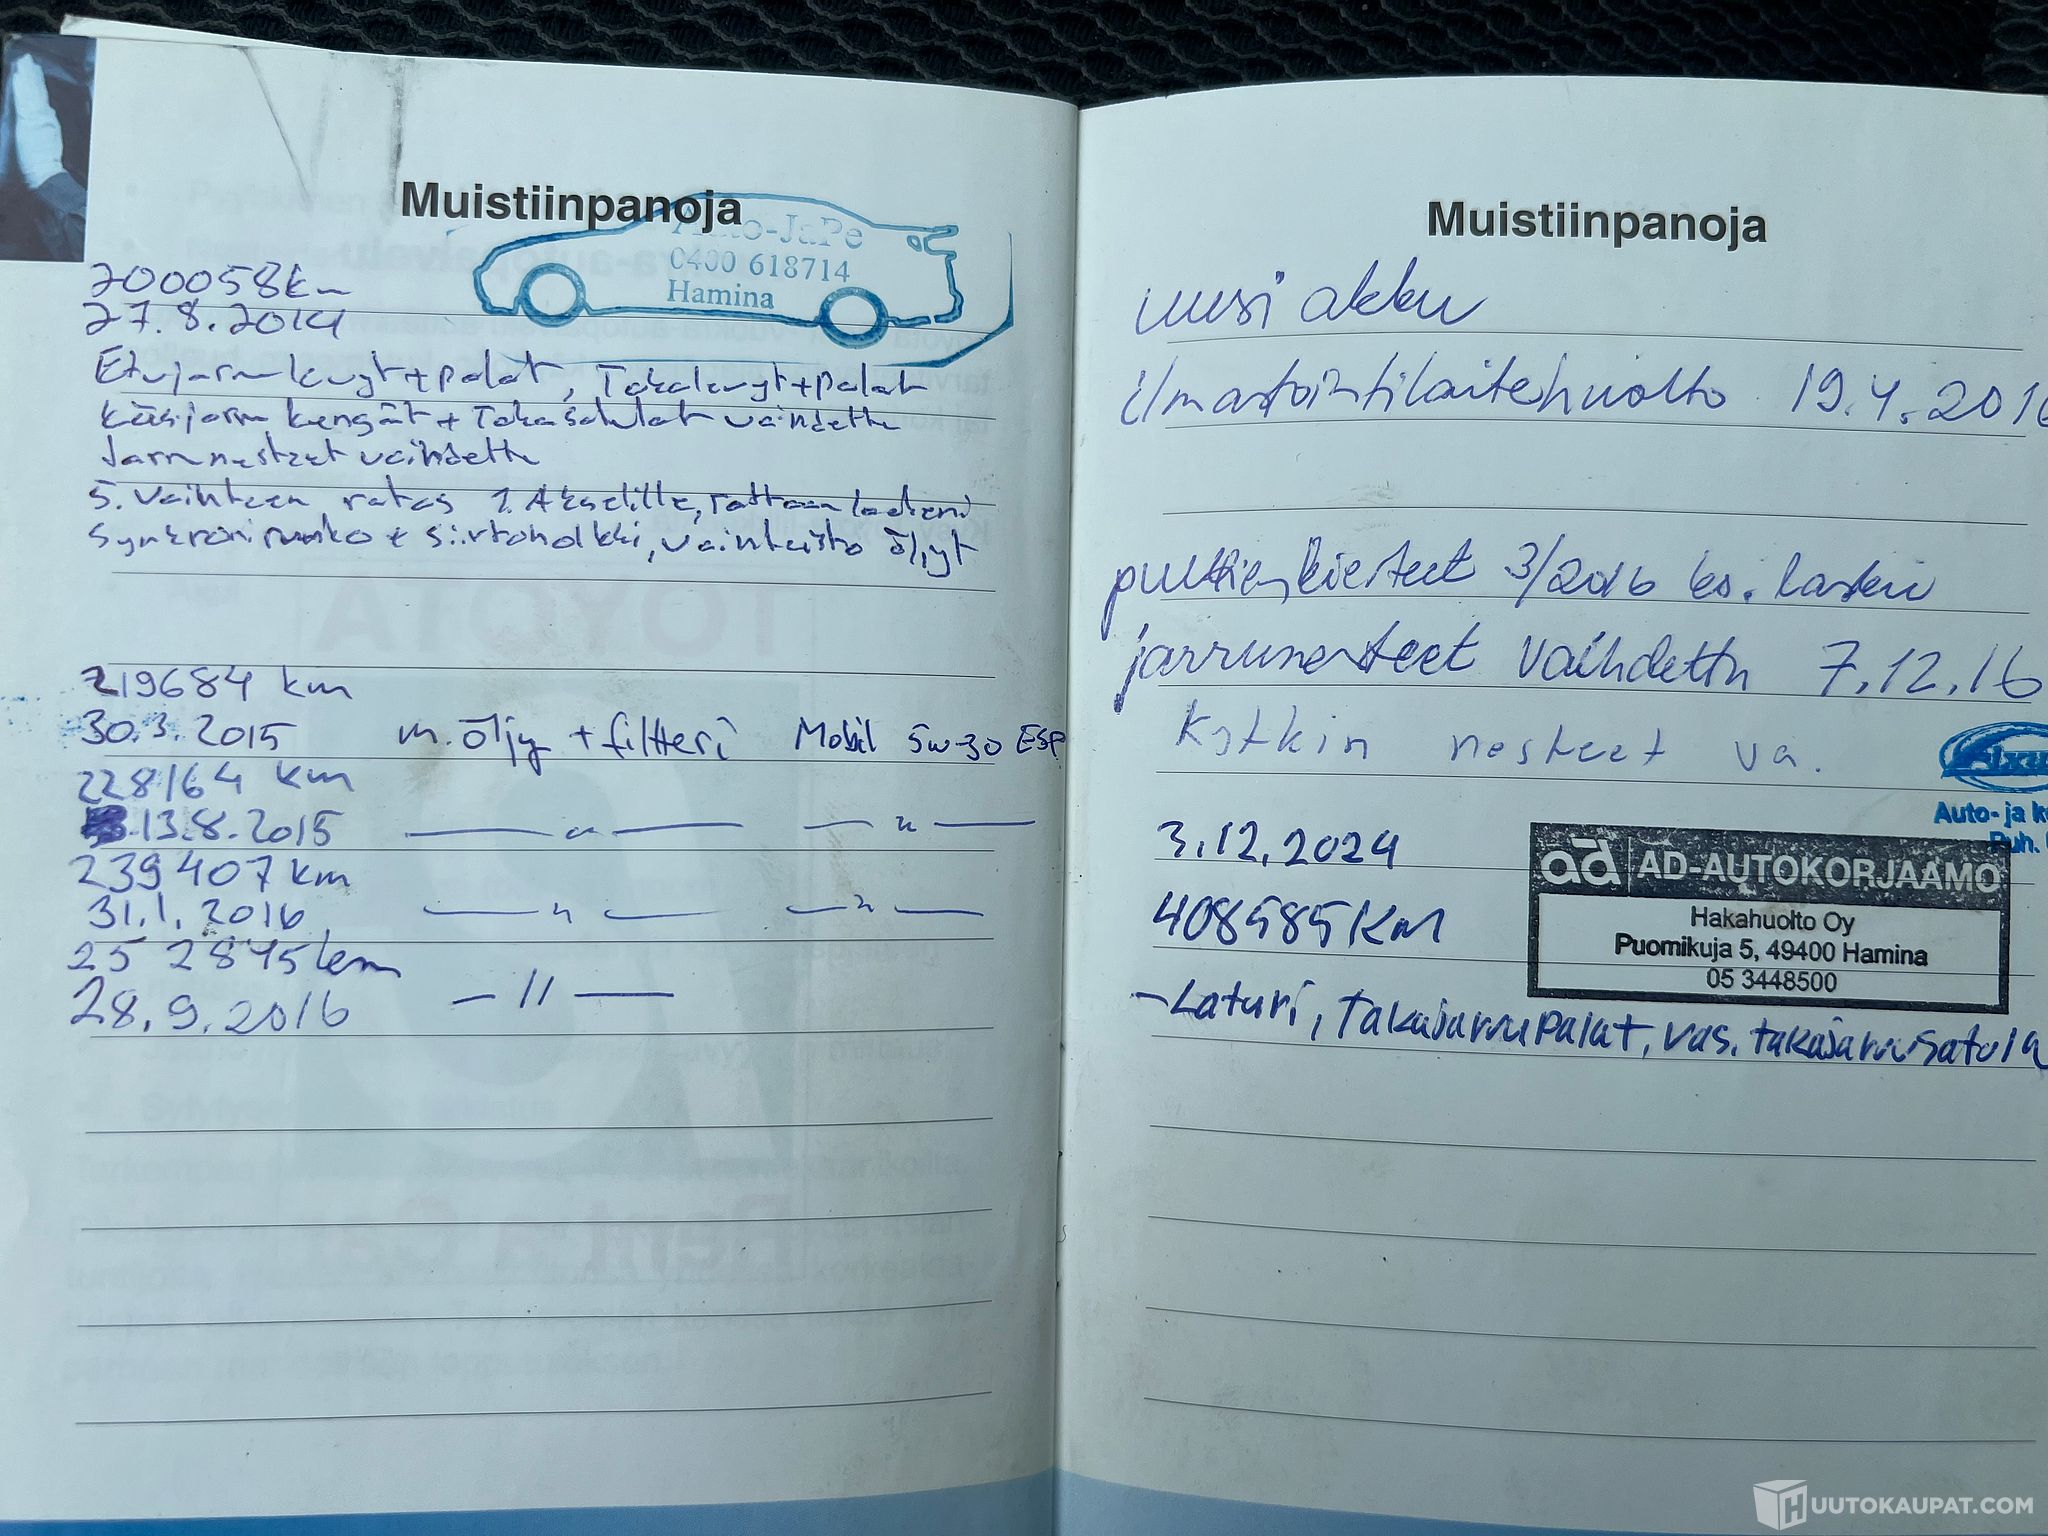 Muistiinpanoja
Auto-JaPe
0400 618714
Hamina
200058km
27.8.2014
Etujarrulevyt+palat, Takalevyt+palat
käsijarru kengät + Takasatulat vaihdettu
Jarrunesteet vaihdettu
5. Vaihteen ratas 2. Akselille, rattaan laakeri
Synkronirunko + siirtoholkki, vaihteisto öljyt
219684 km
30.3.2015 m.öljy + filtteri Mobil 5w-30 ESP
228164 km
13.8.2015 — " — — " —
239407 km
31.1.2016 — " — — " —
252845km
28.9.2016 — " —
Muistiinpanoja
uusi akku
ilmastointilaitehuolto 19.4.2016
pulttien kierteet 3/2016 ks. lasku
jarrunesteet vaihdettu 7.12.16
Kytkin nesteet va.
Auto- ja
Puh.
3.12.2024
408585KM
ad AD-AUTOKORJAAMO
Hakahuolto Oy
Puomikuja 5, 49400 Hamina
05 3448500
- Laturi, Takajarrupalat, vas. takajarrusatula
HUUTOKAUPAT.COM